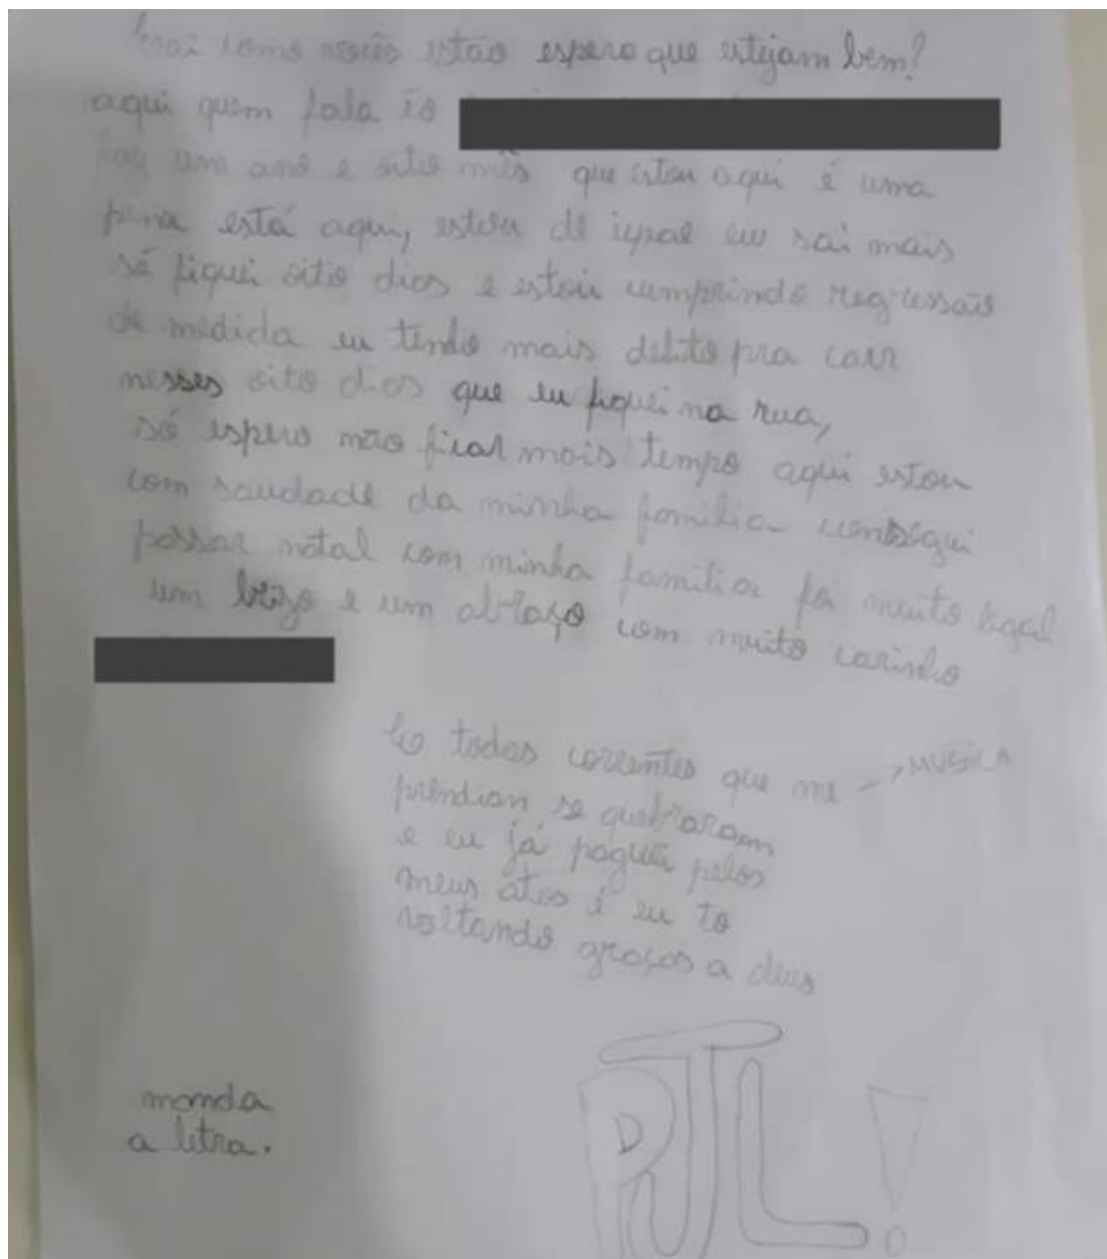 como vocês estão espero que estejam bem?
aqui quem fala é o
faz um ano e oito mês que estou aqui é uma
pena está aqui, estou de igual eu sai mais
só fiquei oito dias e estou cumprindo regressão
de medida eu tendo mais delito pra cair
nesses oito dias que eu fiquei na rua,
só espero não ficar mais tempo aqui estou
com saudade da minha familia consegui
passar natal com minha familia foi muito legal
um beijo e um abraço com muito carinho
todas correntes que me → MUSICA
prendian se quebraram
e eu já paguei pelos
meus atos é eu to
voltando graças a deus
manda
a letra.
PJL!